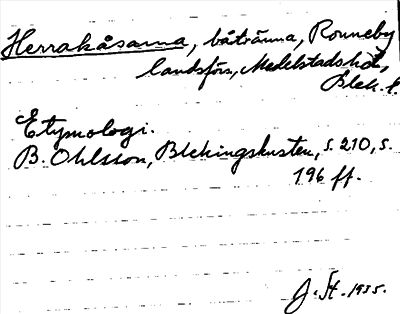 Herrakåsarna, båtränna, Ronneby
landsförs, Medelstadshd,
Blek. l.
Etymologi.
B. Ohlsson, Blekingskusten, s. 210, s.
196 ff.
J. St. 1935.